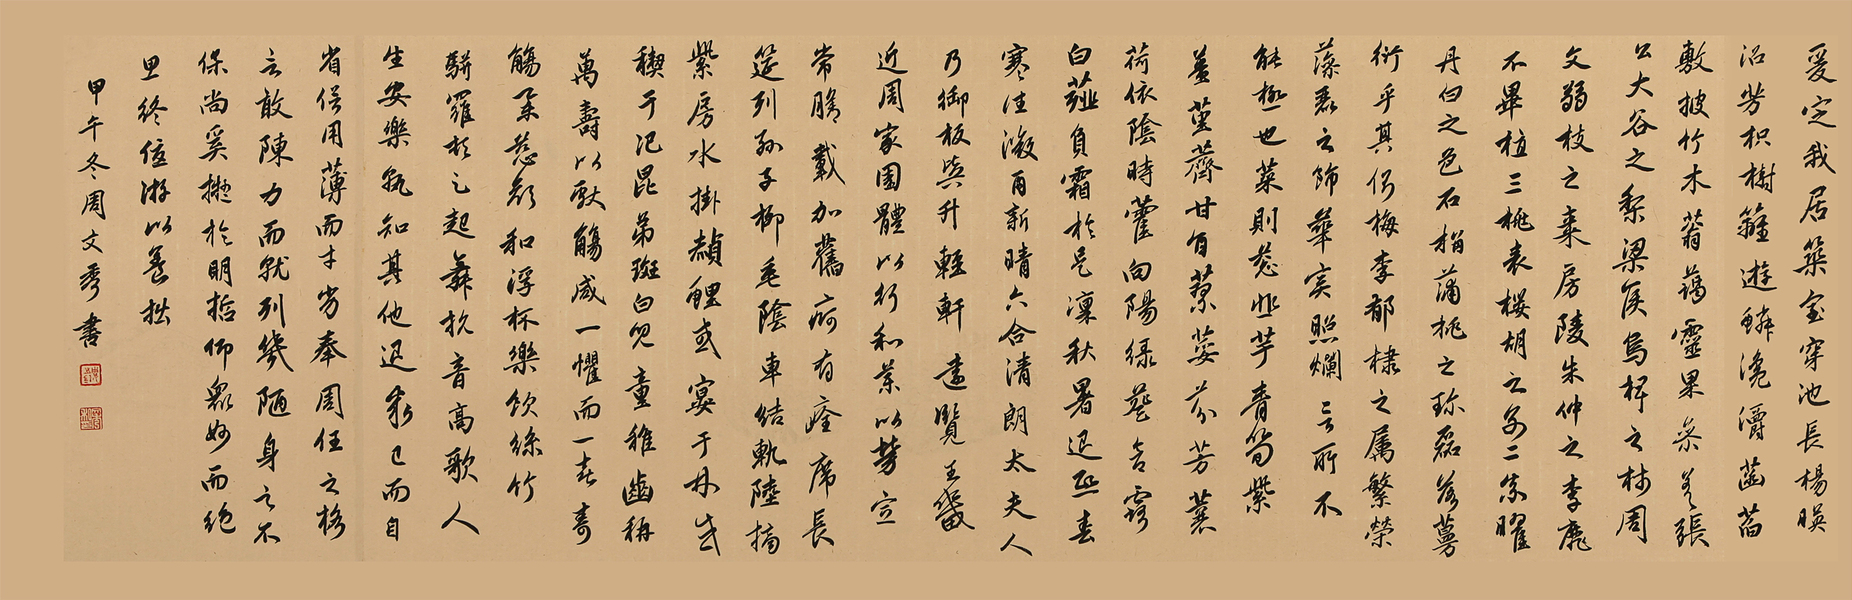 爰定我居築室穿池長楊暎
沼芳枳樹籬遊鱗瀺灂菡萏
敷披竹木蓊藹靈果參差張
公大谷之梨梁侯烏椑之柿周
文弱枝之棗房陵朱仲之李靡
不畢植三桃表櫻胡之別二柰曜
丹白之色石榴蒲桃之珍磊落蔓
衍乎其側梅李郁棣之属繁榮
藻麗之飾華实照爛言所不
能極也菜則葱韭芋青筍紫
薑堇薺甘旨蓼荽芬芳蘘
荷依陰時藿向陽緑葵含露
白薤負霜於是凜秋暑退熙春
寒往微雨新晴六合清朗太夫人
乃御板輿升輕軒遠覽王畿
近周家園體以行和藥以勞宣
常膳載加舊痾有痊席長
筵列孫子柳垂陰車結軌陸摘
紫房水掛赬鯉或宴于林或
禊于汜昆弟斑白兒童稚齒稱
萬壽以獻觴咸一懼而一喜壽
觴举慈顏和浮杯樂飲絲竹
駢羅頓足起舞抗音高歌人
生安樂孰知其他退求己而自
省信用薄而才劣奉周任之格
言敢陳力而就列幾陋身之不
保尚奚擬於明哲仰眾妙而絕
思終優游以養拙
甲午冬周文秀書